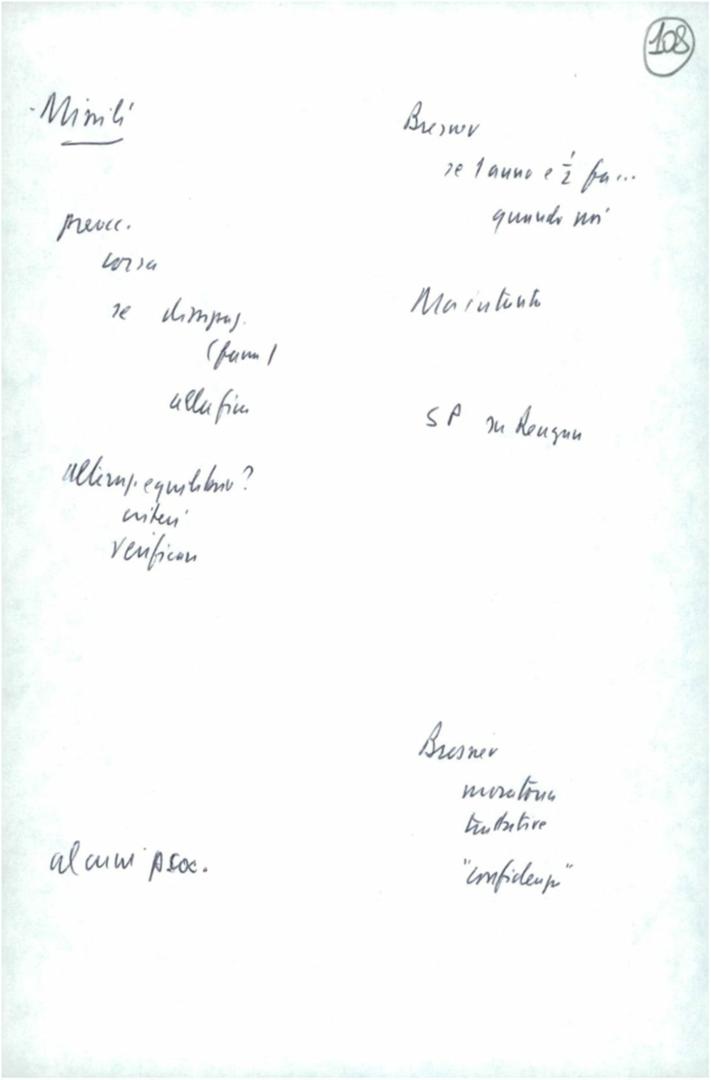 108
- Missili
preocc.
corsa
se
(fame)
alla fine
equilibrio?
criteri
verificare
alcuni psoc.
Bresnev
se 1 anno e ½ fa...
quando noi
Ma intanto
SP su Reagan
Bresnev
moratoria
trattative
"confidenze"